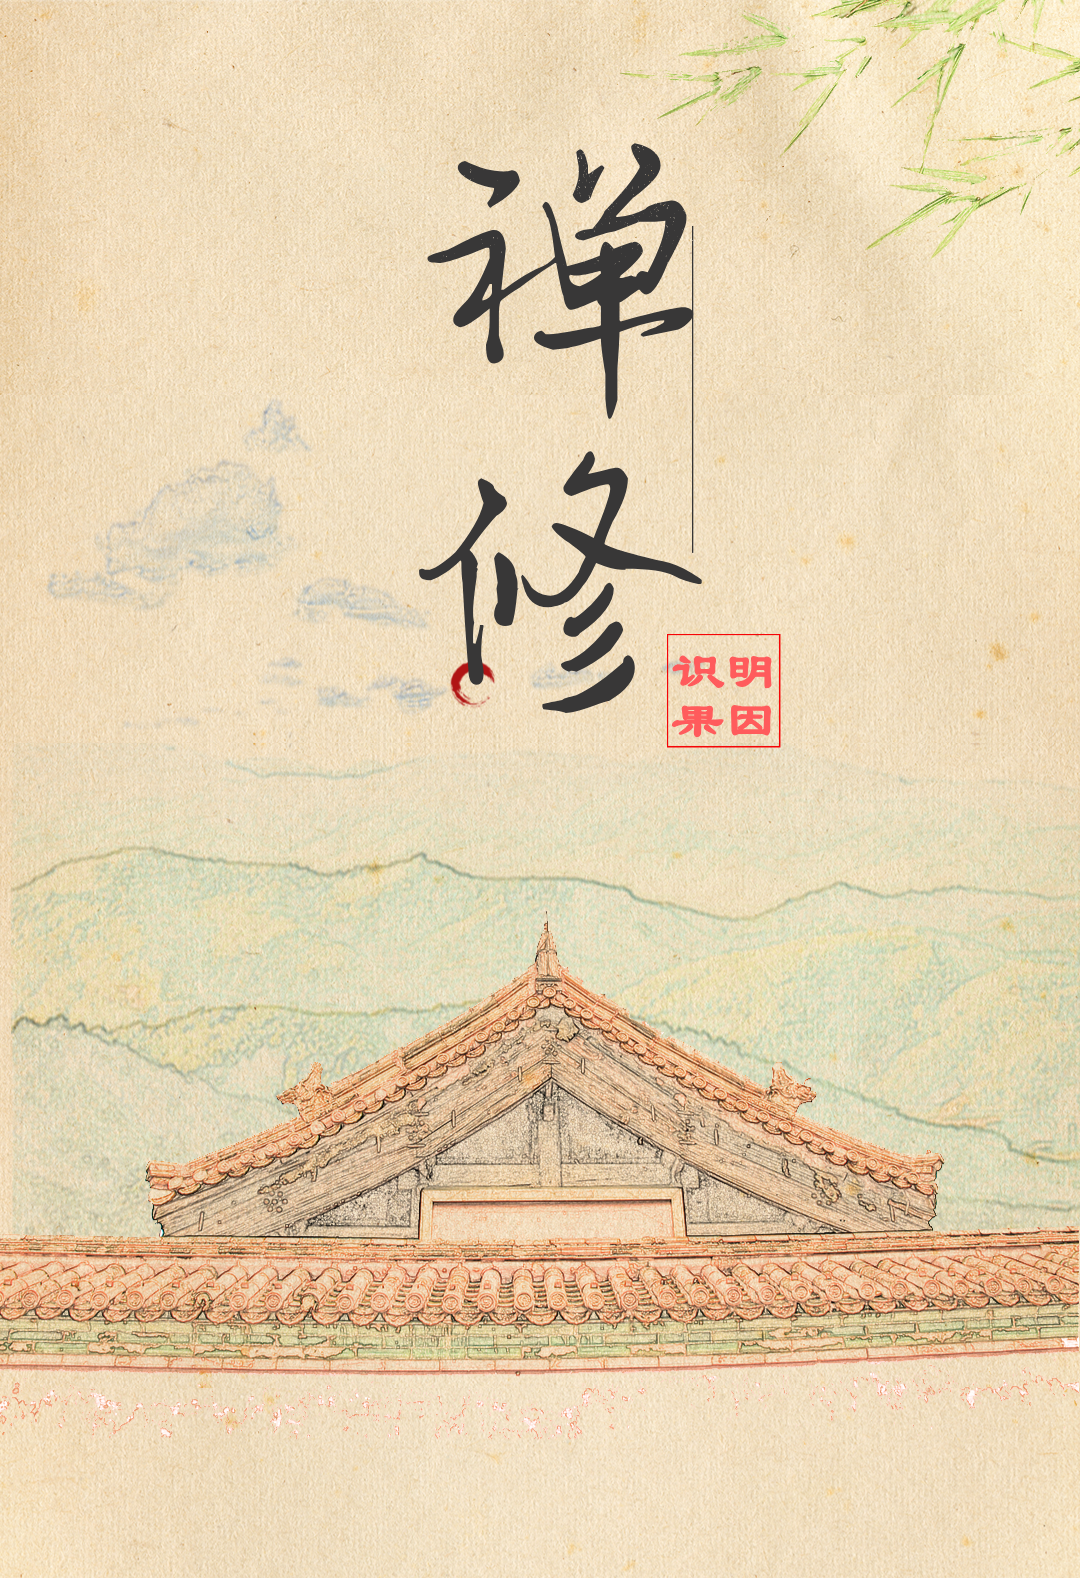 禅修
明因
识果